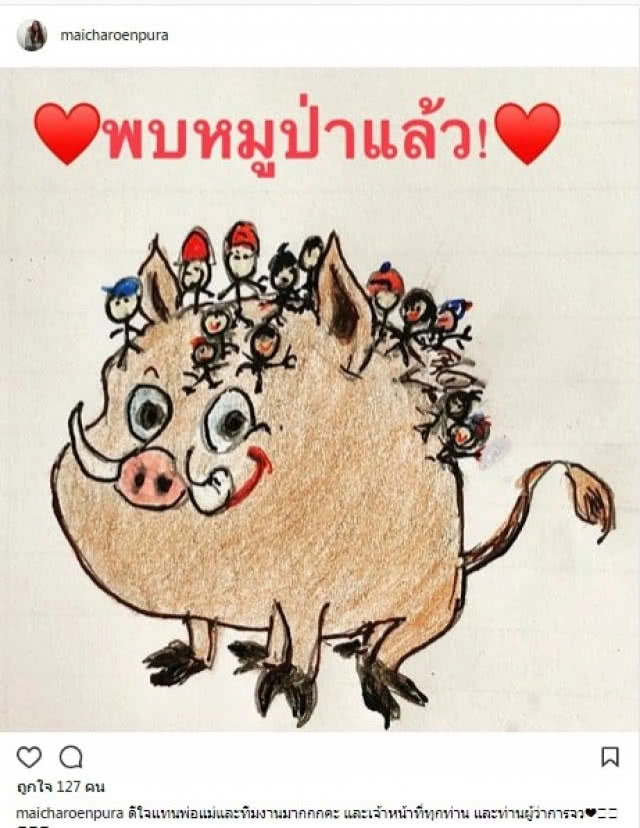 maicharoenpura
❤พบหมูป่าแล้ว!❤
ถูกใจ 127 คน
maicharoenpura ดีใจแทนพ่อแม่และทีมงานมากกกคะ และเจ้าหน้าที่ทุกท่าน และท่านผู้ว่าการจว❤